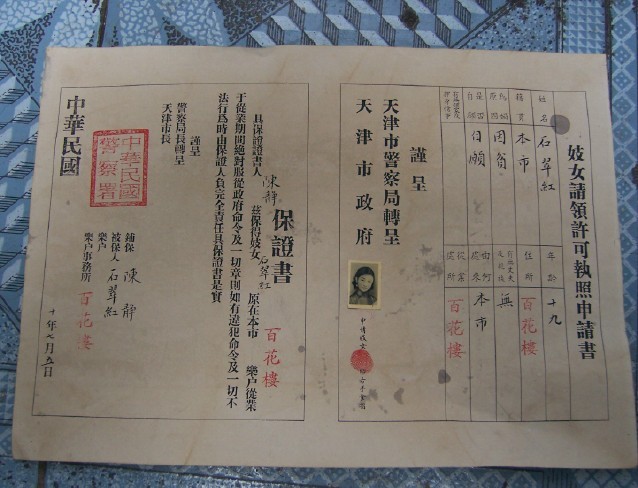 妓女請領許可執照申請書
姓名 石翠紅 年齡 十九
籍貫 本市 住所 百花樓
因貧 無
自願 由何處來 本市
從業處所 百花樓
謹呈
天津市警察局轉呈
天津市政府
保證書
具保證書人 陳靜 茲保得妓女 石翠紅 原在本市 百花樓 樂户從業
于從業期間絕對服從政府命令及一切章則如有違犯命令及一切不
法行為時由保證人負完全責任具保證書是實
謹呈
警察局長轉呈
天津市長
中華民國警察署
鋪保 陳靜
被保人 石翠紅
樂户
樂户事務所 百花樓
中華民國
十年七月五日